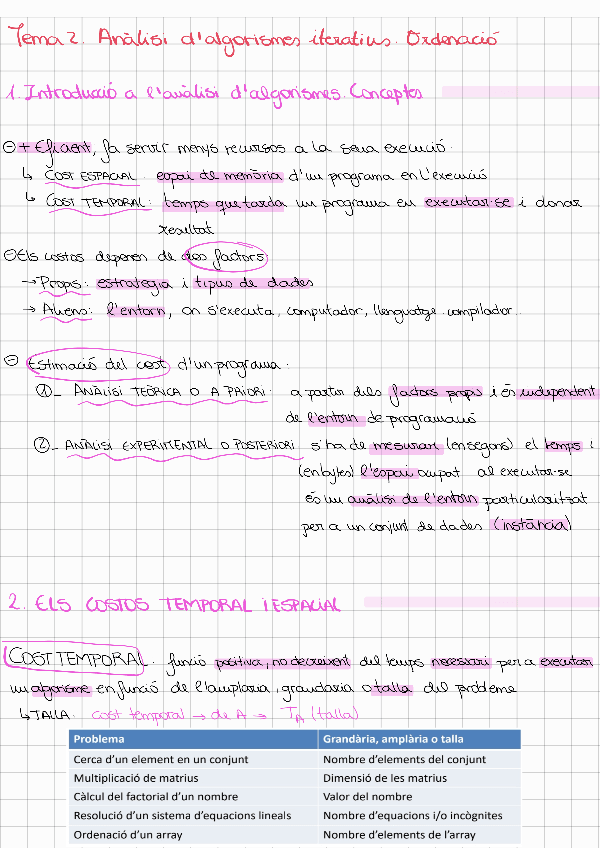 Tema 2. Anàlisi d'algorismes iteratius. Ordenació
1. Introducció a l'anàlisi d'algorismes. Conceptes
+ Eficient, fa servir menys recursos a la seua execució.
↳ COST ESPACIAL: espai de memòria d'un programa en l'execució
↳ COST TEMPORAL: temps que tarda un programa en executar-se i donar
resultat
Els costos depenen de dos factors:
→ Props: estrategia i tipus de dades
→ Aliens: l'entorn, on s'executa, computador, llenguatge, compilador...
Estimació del cost d'un programa:
1_ ANÀLISI TEÒRICA O A PRIORI: a partir dels factors props i és independent
de l'entorn de programació
2_ ANÀLISI EXPERIMENTAL O POSTERIORI s'ha de mesurar (en segons) el temps i
(en bytes) l'espai ocupat al executar-se
és un anàlisi de l'entorn particularitzat
per a un conjunt de dades (instància)
2. ELS COSTOS TEMPORAL I ESPACIAL
COST TEMPORAL. funció positiva, no decreixent del temps necessari per a executar
un algorisme en funció de l'amplaria, grandaria o talla del problema
↳ TALLA. cost temporal → de A → T_A (talla)
Problema Grandària, amplària o talla
Cerca d'un element en un conjunt Nombre d'elements del conjunt
Multiplicació de matrius Dimensió de les matrius
Càlcul del factorial d'un nombre Valor del nombre
Resolució d'un sistema d'equacions lineals Nombre d'equacions i/o incògnites
Ordenació d'un array Nombre d'elements de l'array